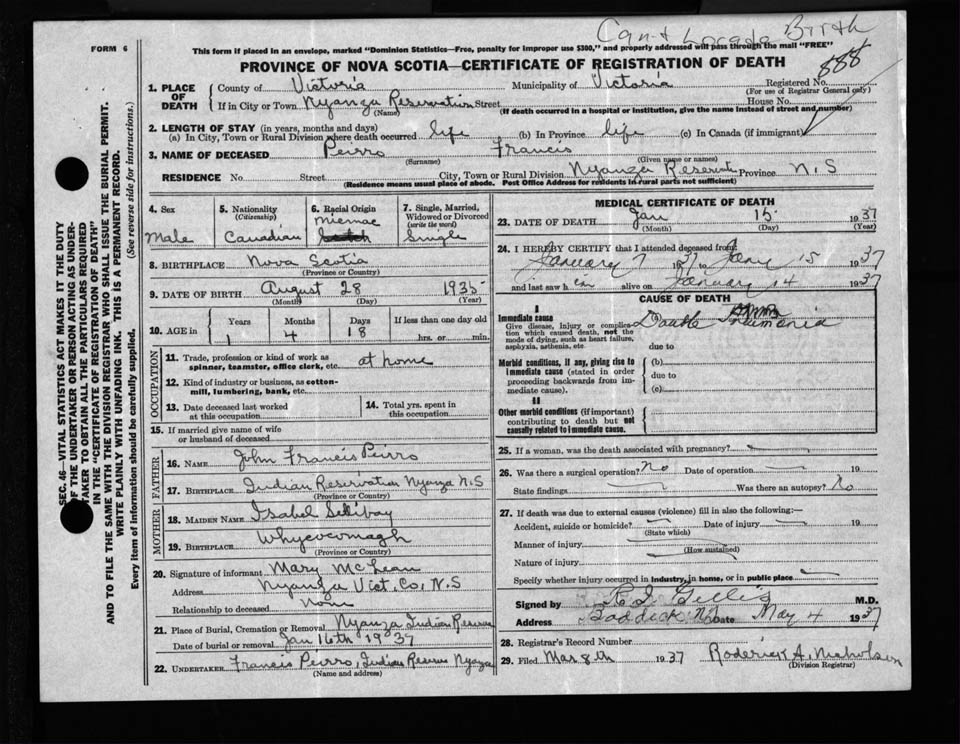 Can't Locate Birth
FORM 6
This form if placed in an envelope, marked "Dominion Statistics—Free, penalty for improper use $300," and properly addressed will pass through the mail "FREE"
PROVINCE OF NOVA SCOTIA—CERTIFICATE OF REGISTRATION OF DEATH
888
1. PLACE OF DEATH County of Victoria Municipality of Victoria Registered No.
(For use of Registrar General only)
If in City or Town Nyanza Reservation Street House No.
(Name) (If death occurred in a hospital or institution, give the name instead of street and number)
2. LENGTH OF STAY (in years, months and days)
(a) In City, Town or Rural Division where death occurred life (b) In Province life (c) In Canada (if immigrant)
3. NAME OF DECEASED Peirro Francis
(Surname) (Given name or names)
RESIDENCE No. Street City, Town or Rural Division Nyanza Reserve Province N.S
(Residence means usual place of abode. Post Office Address for residents in rural parts not sufficient)
4. Sex Male
5. Nationality (Citizenship) Canadian
6. Racial Origin Micmac
7. Single, Married, Widowed or Divorced (write the word) Single
8. BIRTHPLACE Nova Scotia
(Province or Country)
9. DATE OF BIRTH August 28 1935
(Month) (Day) (Year)
10. AGE in Years Months Days If less than one day old
1 4 18 hrs. or min.
OCCUPATION
11. Trade, profession or kind of work as spinner, teamster, office clerk, etc. at home
12. Kind of industry or business, as cotton-mill, lumbering, bank, etc.
13. Date deceased last worked at this occupation
14. Total yrs. spent in this occupation
15. If married give name of wife or husband of deceased
FATHER
16. NAME John Francis Peirro
17. BIRTHPLACE Indian Reservation Nyanza N.S
(Province or Country)
MOTHER
18. MAIDEN NAME Isabel
19. BIRTHPLACE Whycocomagh
(Province or Country)
20. Signature of informant Mary McLean
Address Nyanza Vict. Co, N.S
Relationship to deceased None
21. Place of Burial, Cremation or Removal Nyanza Indian Reserve
Date of burial or removal Jan 16th 1937
22. UNDERTAKER Francis Peirro, Indian Reserve Nyanza
(Name and address)
MEDICAL CERTIFICATE OF DEATH
23. DATE OF DEATH Jan 15 1937
(Month) (Day) (Year)
24. I HEREBY CERTIFY that I attended deceased from
January 7 1937 to Jany 15 1937
and last saw h im alive on January 14 1937
CAUSE OF DEATH
I
Immediate cause
Give disease, injury or complication which caused death, not the mode of dying, such as heart failure, asphyxia, asthenia, etc.
(a) Double Pneumonia
due to
Morbid conditions, if any, giving rise to immediate cause (stated in order proceeding backwards from immediate cause).
(b)
due to
(c)
II
Other morbid conditions (if important) contributing to death but not causally related to immediate cause.
25. If a woman, was the death associated with pregnancy?
26. Was there a surgical operation? No Date of operation 19
State findings Was there an autopsy? No
27. If death was due to external causes (violence) fill in also the following:—
Accident, suicide or homicide? Date of injury 19
(State which)
Manner of injury
(How sustained)
Nature of injury
Specify whether injury occurred in industry, in home, or in public place
Signed by R I Gillis M.D.
Address Baddeck NS Date May 4 1937
28. Registrar's Record Number
29. Filed Mar 8th 1937 Roderick A. Nicholson
(Division Registrar)
SEC. 46—VITAL STATISTICS ACT MAKES IT THE DUTY
OF THE UNDERTAKER OR PERSON ACTING AS UNDER-
TAKER TO OBTAIN ALL THE PARTICULARS REQUIRED
IN THE "CERTIFICATE OF REGISTRATION OF DEATH"
AND TO FILE THE SAME WITH THE DIVISION REGISTRAR WHO SHALL ISSUE THE BURIAL PERMIT.
WRITE PLAINLY WITH UNFADING INK. THIS IS A PERMANENT RECORD.
Every item of information should be carefully supplied. (See reverse side for instructions.)